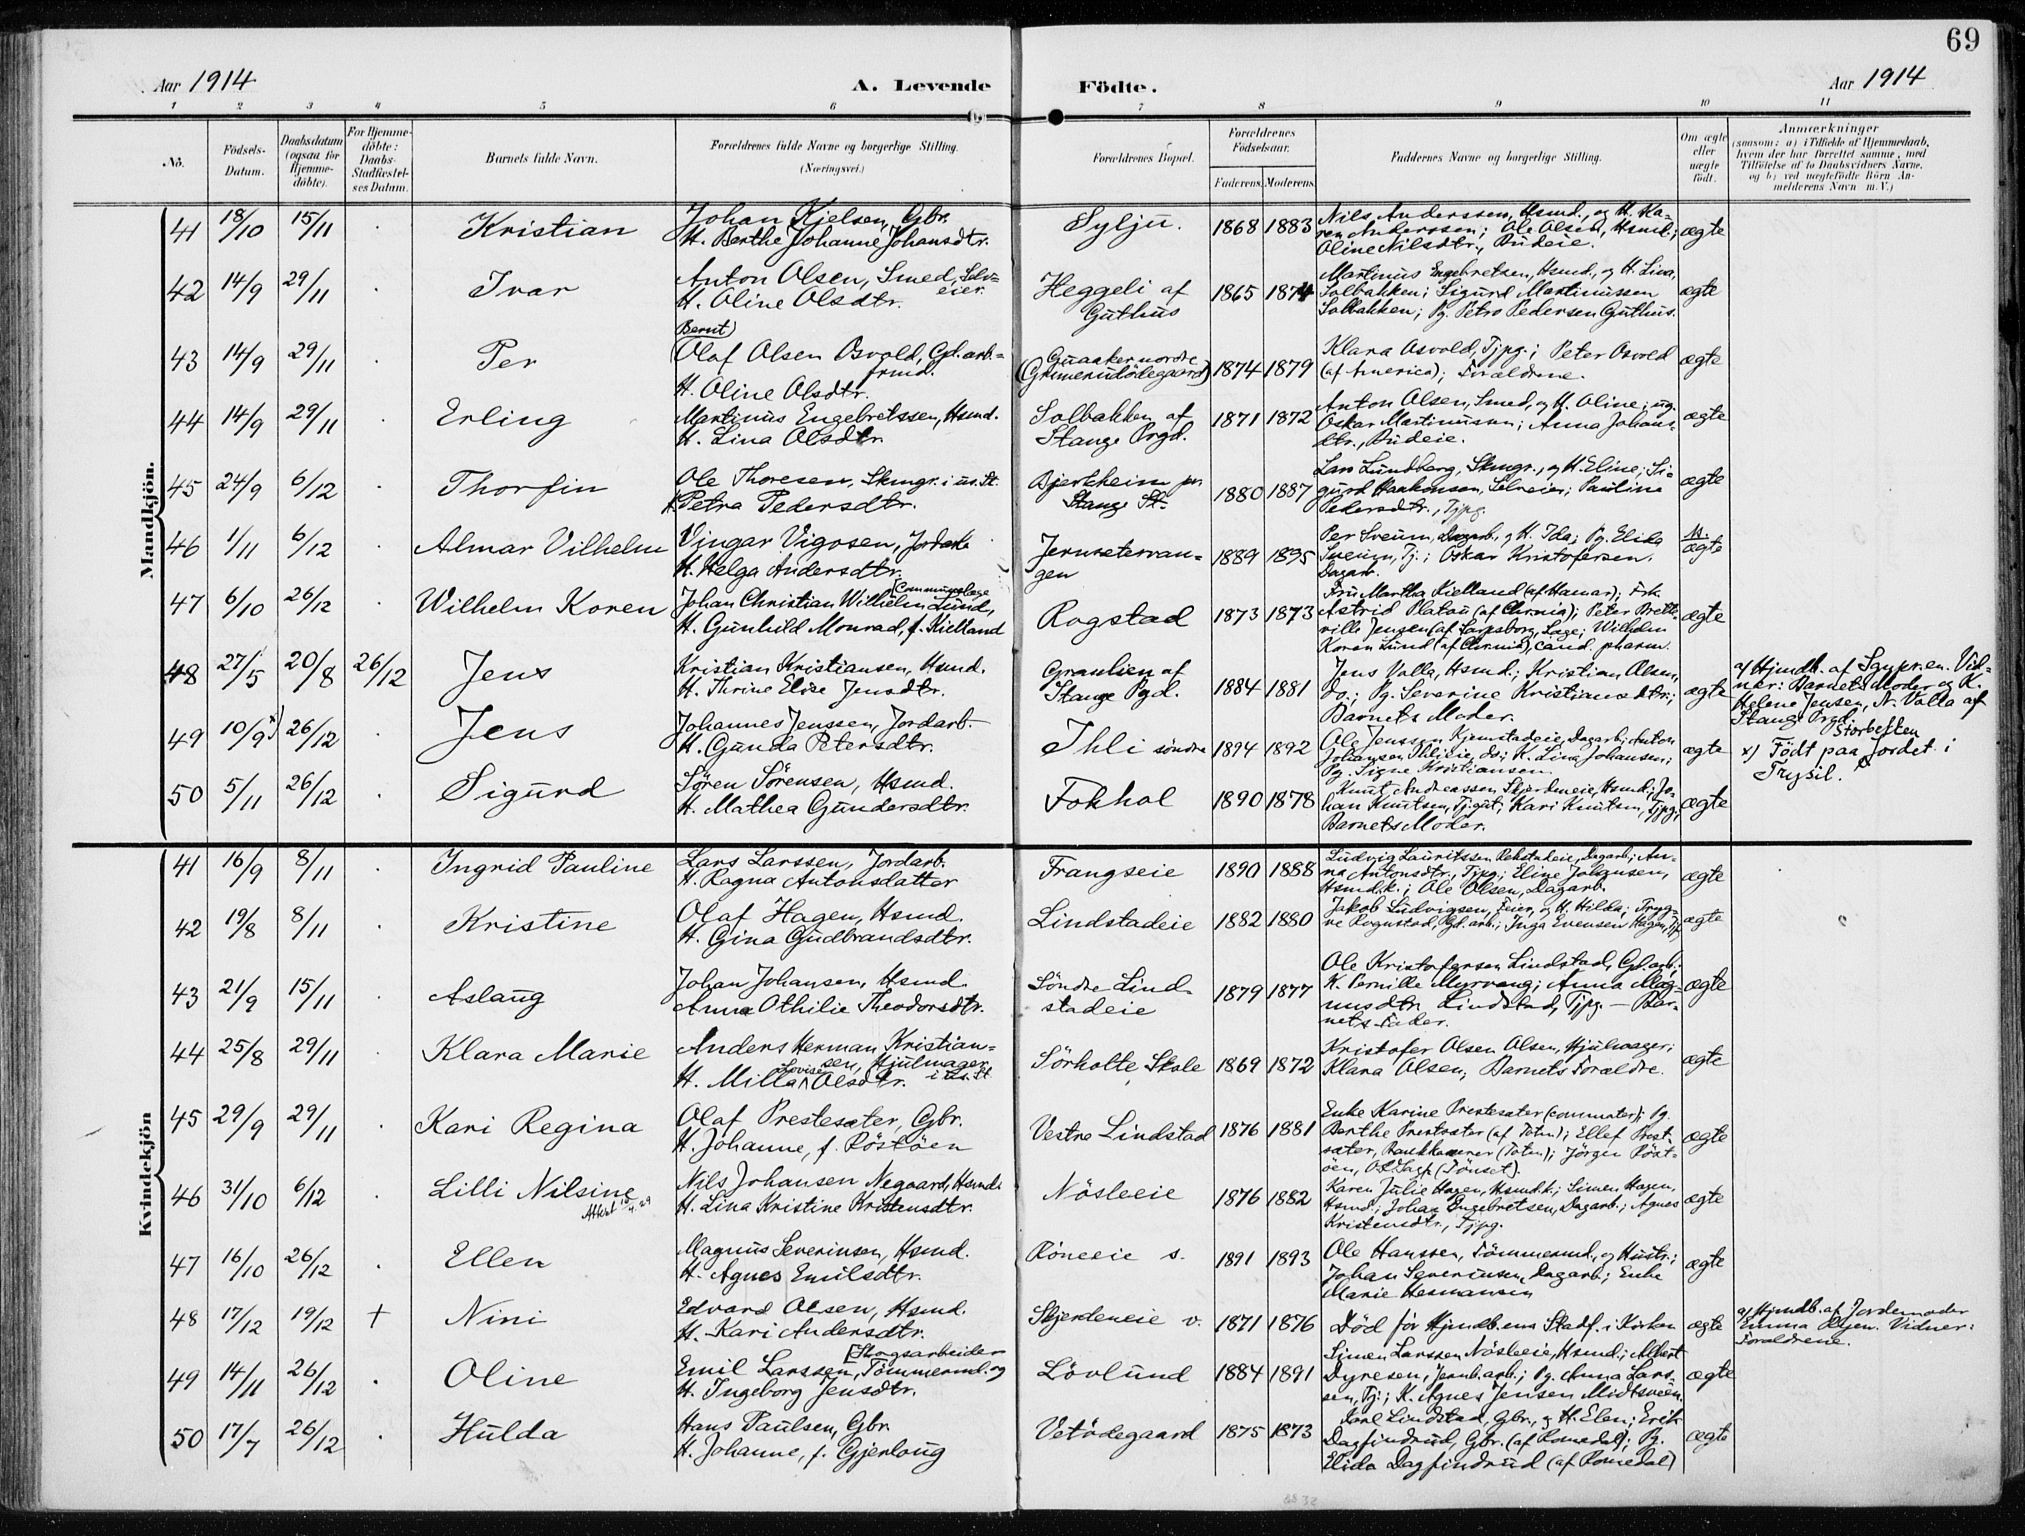 69
Aar 1914
A. Levende Födte.
Aar 1914
1 2 3 4 5 6 7 8 9 10 11
No.
Födsels-Datum.
Daabsdatum (ogsaa for Hjemme-döbte).
For Hjemme-döbte: Daabs-Stadfæstel-ses Datum.
Barnets fulde Navn.
Forældrenes fulde Navne og borgerlige Stilling. (Næringsvei.)
Forældrenes Bopæl.
Forældrenes Födselsaar.
Faderens. Moderens.
Faddernes Navne og borgerlige Stilling.
Om ægte eller uægte födt.
Anmærkninger
(saasom: a) i Tilfælde af Hjemmedaab, hvem der har forrettet samme, med Tilföielse af to Daabsvidners Navne, og b) ved uægtefödte Börn An-melderens Navn m. V.)
Mandkjön.
41 18/10 15/11 . Kristian
Johan Kjelsen, Gbr.
H. Berthe Johanne Johansdtr.
Sylju. 1868 1883
Nils Anderssen, Hsmd., og H. Ka-
ren Anderssen; Ole Olsen, Hsmd.;
Oline Nilsdtr., Rudeie.
ægte
42 14/9 29/11 . Ivar
Anton Olsen, Smed, Selv-
eier.
H. Oline Olsdtr.
Heggeli af
Guthus
1865 1874
Martinus Engebretsen, Hsmd., og H. Lina,
Solbakken; Sigurd Martinussen
Solbakken; Pg. Petra Pedersen Guthus.
ægte
43 14/9 29/11 . Per
Bernt)
Olaf Olsen Osvold, Gd.arb.-
frmd.
H. Oline Olsdtr.
Guaaker nordre
(Grimerudödegaard)
1874 1879
Klara Osvold, Tjpg.; Peter Osvold
(af America); Forældrene.
ægte
44 14/9 29/11 . Erling
Martinus Engebretssen, Hsmd.
H. Lina Olsdtr.
Solbakken af
Stange Prgd.
1871 1872
Anton Olsen, Smed, og H. Oline; ug.
Oskar Martinussen; Anna Johans-
dtr., Rudeie.
ægte
45 24/9 6/12 . Thorfin
Ole Thoresen, Skmgr. i us. St.
H. Petra Pedersdtr.
Bjerkheim pr.
Stange St.
1880 1887
Lars Lundberg, Skmgr., og H. Eline; Si-
gurd Haakonsen, Selveier; Pauline
Pedersdtr., Tjpg.
ægte
46 1/11 6/12 . Almar Vilhelm
Vingar Vigosen, Jordarb.
H. Helga Andersdtr.
Jernsetervan-
gen
1889 1895
Per Sveum, Dagarb., og H. Ida; Pg. Elida
Sveum, Tj.; Oskar Kristofersen,
Dagarb.
ægte
47 6/10 26/12 . Wilhelm Koren
Johan Christian Wilhelm Lund,
H. Gunhild Monrad, f. Kielland
Rogstad 1873 1873
Fru Martha Kielland (af Hamar); Frk.
Astrid Platou (af Chrnia); Peter Brette-
ville Jensen (af Sarpsborg, Læge; Wilhelm
Koren Lund (af Chrnia), cand. pharm.
ægte
48 27/5 20/8 26/12 Jens
Kristian Kristiansen, Hsmd.
H. Thrine Elise Jensdtr.
Granlien af
Stange Pgd.
1884 1881
Jens Valla, Hsmd.; Kristian Olsen,
do.; Pg. Severine Kristiansdtr.;
Barnets Moder.
ægte
a) Hjmdb. af Sognepr. en. Vid-
ner: Barnets Moder og K.
Helene Jensen, N. Valla af
Stange Prgd.
49 10/9 x) 26/12 Jens
Johannes Jenssen, Jordarb.
H. Gunda Petersdtr.
Ihli söndre 1894 1892
Ole Jenssen Kjemstadeie, Dagarb.; Anton
Johansen Ihlieie, do; K. Lina Johansen;
Pg. Signe Kristiansen.
ægte
x) Födt paa Jordet i
Trysil.
50 5/11 26/12 . Sigurd
Sören Sörensen, Hsmd.
H. Mathea Gundersdtr.
Fokhol 1890 1878
Knut Andreassen Skjerdeneie, Hsmd.; Jo-
han Knutsen, Tjgut; Kari Knutsen, Tjpg.;
Barnets Moder.
ægte
Kvindekjön
41 16/9 8/11 . Ingrid Pauline
Lars Larssen, Jordarb.
H. Ragna Antonsdatter
Frangseie 1890 1888
Ludvig Lauritssen Rekstadeie, Dagarb.; An-
na Antonsdtr., Tjpg.; Eline Johansen,
Hsmd.k.; Ole Olsen, Dagarb.
ægte
42 19/8 8/11 . Kristine
Olaf Hagen, Hsmd.
H. Gina Gudbrandsdtr.
Lindstadeie 1882 1880
Jakob Ludvigsen, Feier, og H. Hilda; Tryg-
ve Rognstad, Gd.arb.; Inga Evensen Hagen, Tj.
ægte
43 21/9 15/11 . Aslaug
Johan Johansen, Hsmd.
Anna Othilie Theodorsdtr.
Söndre Lind-
stadeie
1879 1877
Ole Kristofersen Lindstad, Gd.arb.;
K. Pernille Myrvang; Anna Mag-
nusdtr. Lindstad, Tjpg. — Bar-
nets Fader.
ægte
44 25/8 29/11 . Klara Marie
Anders Herman Kristian-
sen, Hjulmager
i us. St
H. Milla Lovise Olsdtr.
Sörholte Skole 1869 1872
Kristofer Olsen Olsen, Hjulmager;
Klara Olsen; Barnets Forældre.
ægte
45 29/9 29/11 . Kari Regina
Olaf Prestesæter, Gbr.
H. Johanne, f. Röstöen
Vestre Lindstad 1876 1881
Enke Karine Prestesæter (commater); Pg.
Berthe Prestsæter (af Toten); Ellef Prest-
sæter, (Toten); Jörgen Röst-
öen, (Tönset).
ægte
46 31/10 6/12 . Lilli Nilsine
Attest 15/4.29
Nils Johansen Negaard, Hsmd.
H. Lina Kristine Kristensdtr.
Nösleeie 1876 1882
Karen Julie Hagen, Hsmd.k.; Simen Hagen,
Hsmd.; Johan Engebretsen, Dagarb.; Agnes
Kristensdtr., Tjpg.
ægte
47 16/10 26/12 . Ellen
Magnus Severinsen, Hsmd.
H. Agnes Emilsdtr.
Röneeie s. 1891 1893
Ole Hanssen, Tömmermd., og Hustr.;
Johan Severinsen, Dagarb.; Enke
Marie Hermansen
ægte
48 17/12 19/12 + Nini
Edvard Olsen, Hsmd.
H. Kari Andersdtr.
Skjerdeneie v. 1871 1876
Död för Hjmdb.ens Stadf. i Kirken
ægte
a) Hjmdb. af Jordemoder
Emma Vidner:
Forældrene.
49 14/11 26/12 . Oline
[Skogsarbeider
Emil Larssen, Tömmermd. og
H. Ingeborg Jensdtr.
Lövlund 1884 1891
Simen Larssen Nösleeie, Hsmd.; Albert
Dyresen, Jernb.arb.; Pg. Anna Lars-
sen, Tj.; K. Agnes Jensen Midtsveen
ægte
50 17/7 26/12 . Hulda
Hans Paulsen, Gbr.
H. Johanne, f. Gjerlaug
Vetödegaard 1875 1873
Karl Lindstad, Gbr., og H. Elen; Erik
Dagfindrud, Gbr. (af Romedal); Pg.
Elida Dagfindrud (af Romedal)
ægte